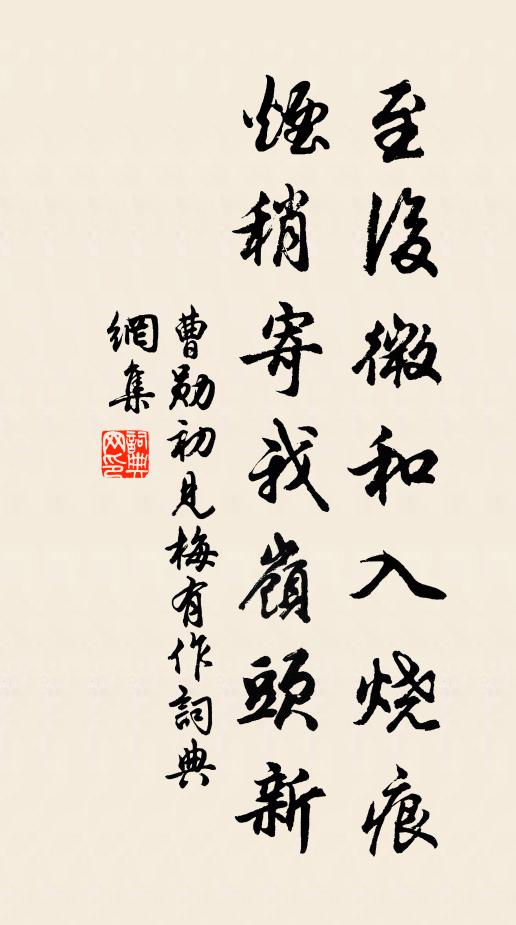 至後微和入燒痕
煙稍寄我嶺頭新
曹勛初見梅有作詞典
網集
詞典
网印